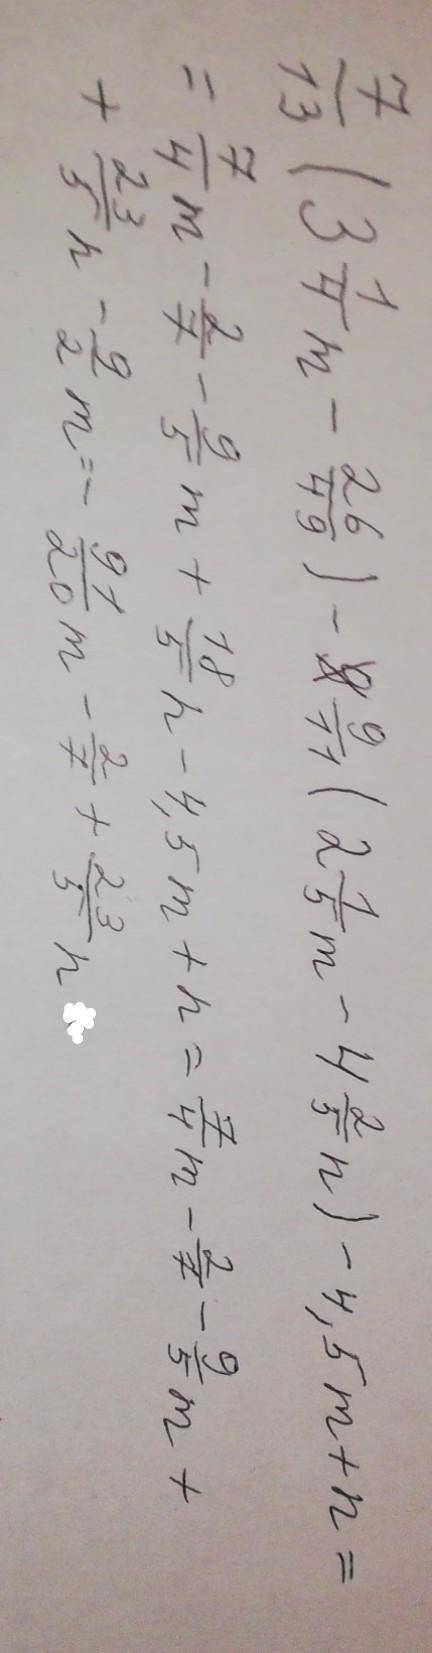 7/13 (3 1/4 m - 26/49) - 9/11 (2 1/5 m - 4 2/5 n) - 4,5m + n =
= 7/4 m - 2/7 - 9/5 m + 18/5 n - 4,5m + n = 7/4 m - 2/7 - 9/5 m +
+ 23/5 n - 9/2 m = - 91/20 m - 2/7 + 23/5 n